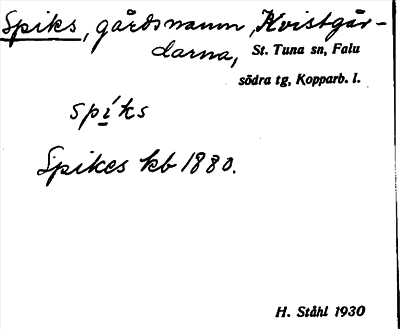 Spiks, gårdsnamn, Kvistgår-
darna, St. Tuna sn, Falu
södra tg, Kopparb. l.
spi´ks
Spikes kb 1880.
H. Ståhl 1930